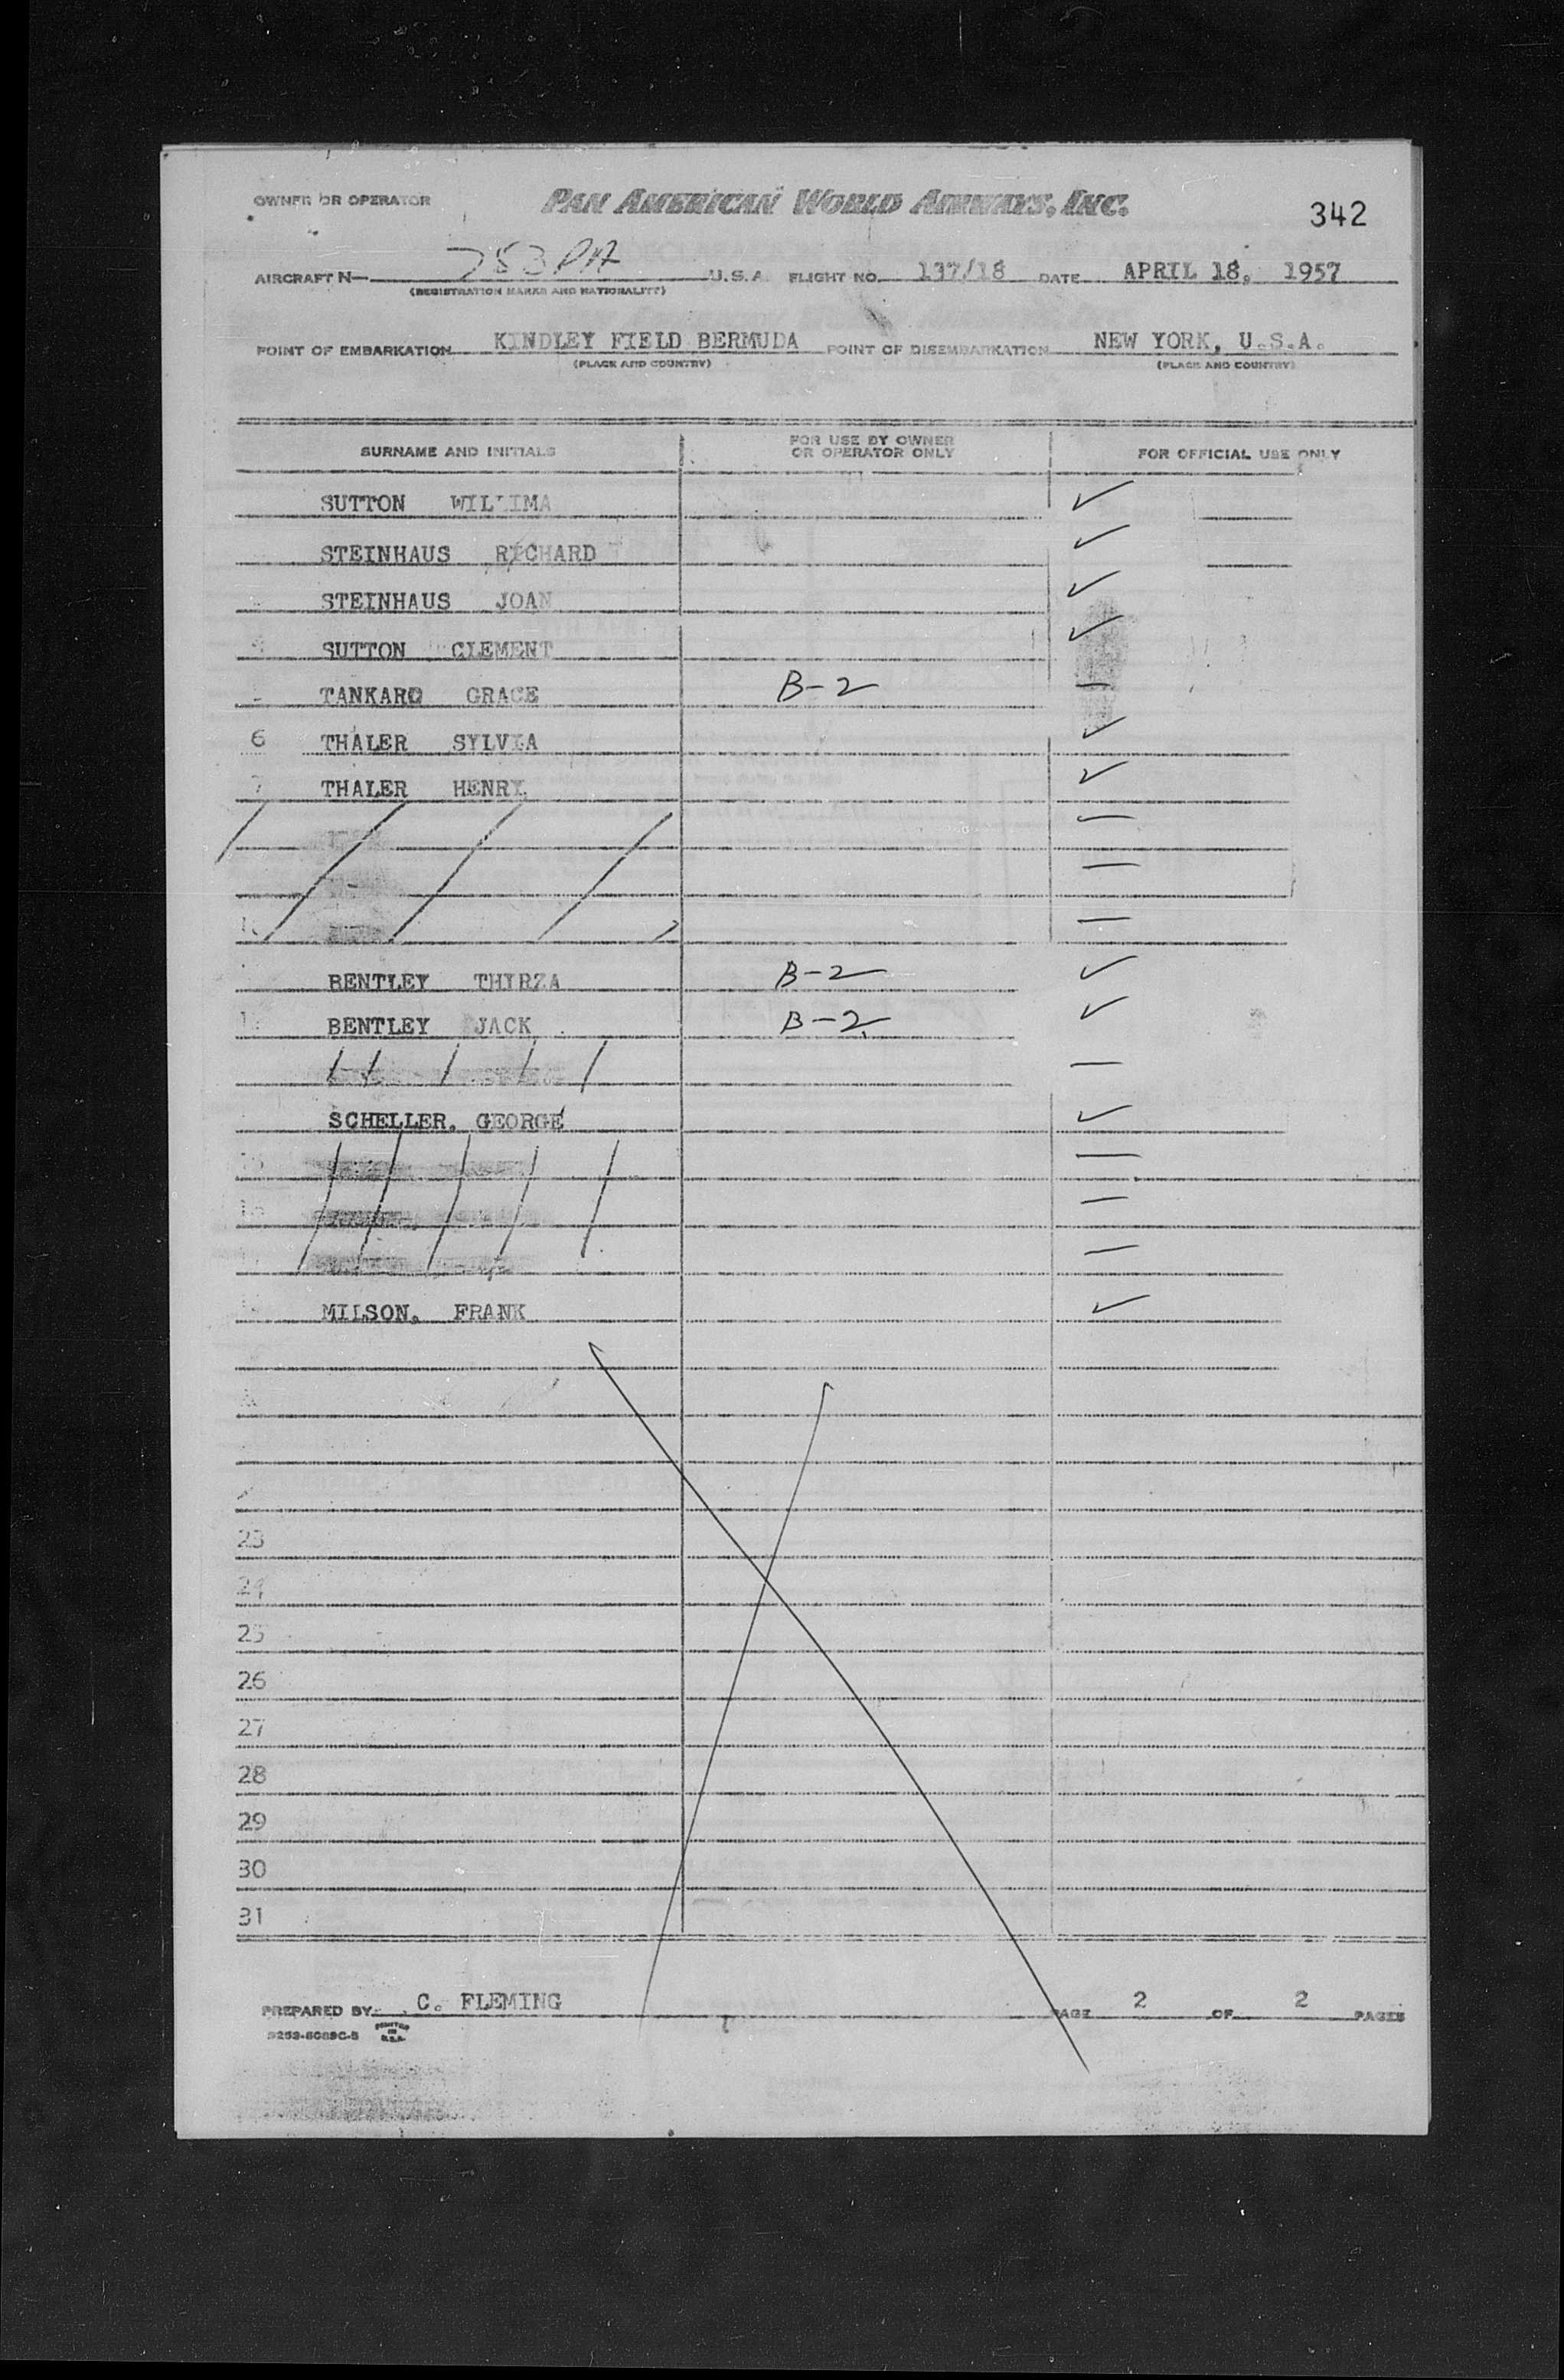 OWNER OR OPERATOR PAN AMERICAN WORLD AIRWAYS, INC. 342
AIRCRAFT N— 783 PA U.S.A. FLIGHT NO. 137/18 DATE APRIL 18, 1957
(REGISTRATION MARKS AND NATIONALITY)
POINT OF EMBARKATION KINDLEY FIELD BERMUDA POINT OF DISEMBARKATION NEW YORK, U.S.A.
(PLACE AND COUNTRY) (PLACE AND COUNTRY)
SURNAME AND INITIALS FOR USE BY OWNER OR OPERATOR ONLY FOR OFFICIAL USE ONLY
SUTTON WILLIMA ✓
STEINHAUS RICHARD ✓
STEINHAUS JOAN ✓
4 SUTTON CLEMENT ✓
TANKARD GRACE B-2 —
6 THALER SYLVIA ✓
7 THALER HENRY ✓
—
—
—
BENTLEY THYRZA B-2 ✓
12 BENTLEY JACK B-2 ✓
—
SCHELLER, GEORGE ✓
15 —
16 —
—
MILSON, FRANK ✓
23
24
25
26
27
28
29
30
31
PREPARED BY C. FLEMING PAGE 2 OF 2 PAGES
PRINTED IN U.S.A.